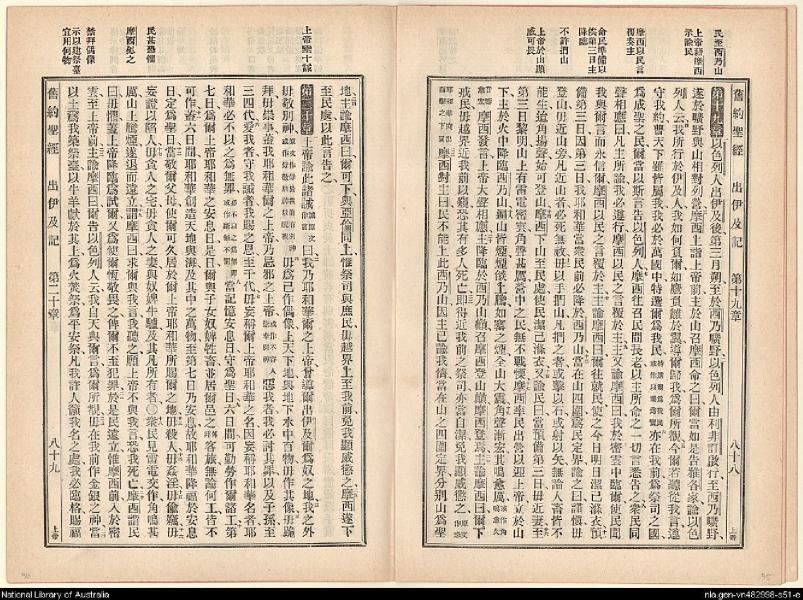 民至西乃山
上帝諭摩西
示諭民
摩西以民言
復奏主
命民準備以
俟第三日主
降臨
不許捫山
上帝於山顛
威可畏
舊約聖經 出伊及記 第十九章 八十八 上帝
第十九章以色列人出伊及後第三月朔至於西乃曠野以色列人由利非訂啟行至西乃曠野
遂於曠野與山相對列營摩西上詣上帝前主於山召摩西命之曰爾當如是告雅各家諭以色
列人云我所行於伊及人我如何負爾如鷹負雛於翼導爾歸我爲爾所親見今爾若聽從我言遵
守我約普天下雖皆屬我我必於萬國中特選爾爲我民亦在我前爲祭司之國
爲成聖之民爾當以斯言告以色列人摩西往召民間長老以主所命之一切言悉告之衆民同
聲相應曰凡主所諭我必遵行摩西以民之言覆於主主諭摩西曰我於密雲中臨爾使民聞
我與爾言而永信爾摩西以民之言覆於主主諭摩西曰爾往就民使之今日明日潔己滌衣預
備第三日因第三日我耶和華當衆民前必降臨西乃山當在山四圍爲民定界諭之曰謹愼毋
登山毋近山旁凡近山者必死無赦毋以手捫山凡捫之者或擊以石或射以矢無論人畜皆不
能生迨角揚聲始可登山摩西下山至民處使民潔己滌衣又諭民曰當預備第三日毋近妻至
第三日黎明山上有雷電密雲角聲甚厲營中之民無不戰慄摩西率民出營以迎上帝立於山
下主於火中降臨西乃山徧山皆煙煙從上騰如窰之煙全山大震角聲漸宏其鳴愈厲
摩西發言上帝大聲相應主降臨於西乃山巔召摩西登山巔摩西登焉主諭摩西曰爾下
戒民毋越界近我前以窺恐其有多人死亡卽得近我前之祭司亦當自潔免我顯威懲之
摩西對主曰民不能上此西乃山因主已諭我儕當在山之四圍定界分別山爲聖
上帝垂十誡
民甚恐懼
摩西慰之
禁拜偶像
示以建祭臺
宜用何物
地主諭摩西曰爾可下與亞倫同上惟祭司與庶民毋越界上至我前免我顯威懲之摩西遂下
至民處以此言告之
第二十章上帝諭此諸誡曰我乃耶和華爾之上帝曾導爾出伊及爲奴之地我之外
毋敬別神毋爲己作偶像上天下地與地下水中百物毋作其像毋跪
拜毋崇事蓋我耶和華爾之上帝乃忌邪之上帝惡我者我必討其罪以及子孫至
三四代愛我者守我誡者我賜之恩至于千代毋妄稱爾上帝耶和華之名因妄稱耶和華名者耶
和華必不以之爲無罪當記憶安息日守爲聖日六日間可勤勞作爾諸工第
七日爲爾上帝耶和華之安息日是日爾與子女奴婢牲畜並居爾邑之客旅無論何工皆不
可作蓋六日間耶和華創造天地與海及其中之萬物至第七日乃安息故耶和華降福於安息
日定爲聖日當敬爾父母使爾可久居於爾上帝耶和華所賜爾之地毋殺人毋姦淫毋偷竊毋
妄證以陷人毋貪人之宅毋貪人之妻與奴婢牛驢及其凡所有者〇衆民見雷電交作角鳴甚
厲山上騰煙遂退而遠立謂摩西曰求爾與我言我聽之願上帝不與我言恐我死亡摩西謂民
曰毋懼蓋上帝降臨爲試爾又爲使爾恆敬畏之俾爾不至犯罪於是民遠立惟摩西前入於密
雲至上帝前主諭摩西曰爾告以色列人云我自天與爾言爲爾所覩毋在我前作金銀之神當
以土爲我築祭臺以牛羊獻於其上爲火焚祭爲平安祭凡我許人籲我名之處我必臨格賜福
舊約聖經 出伊及記 第二十章 八十九 上帝
National Library of Australia
nla.gen-vn482998-s51-e